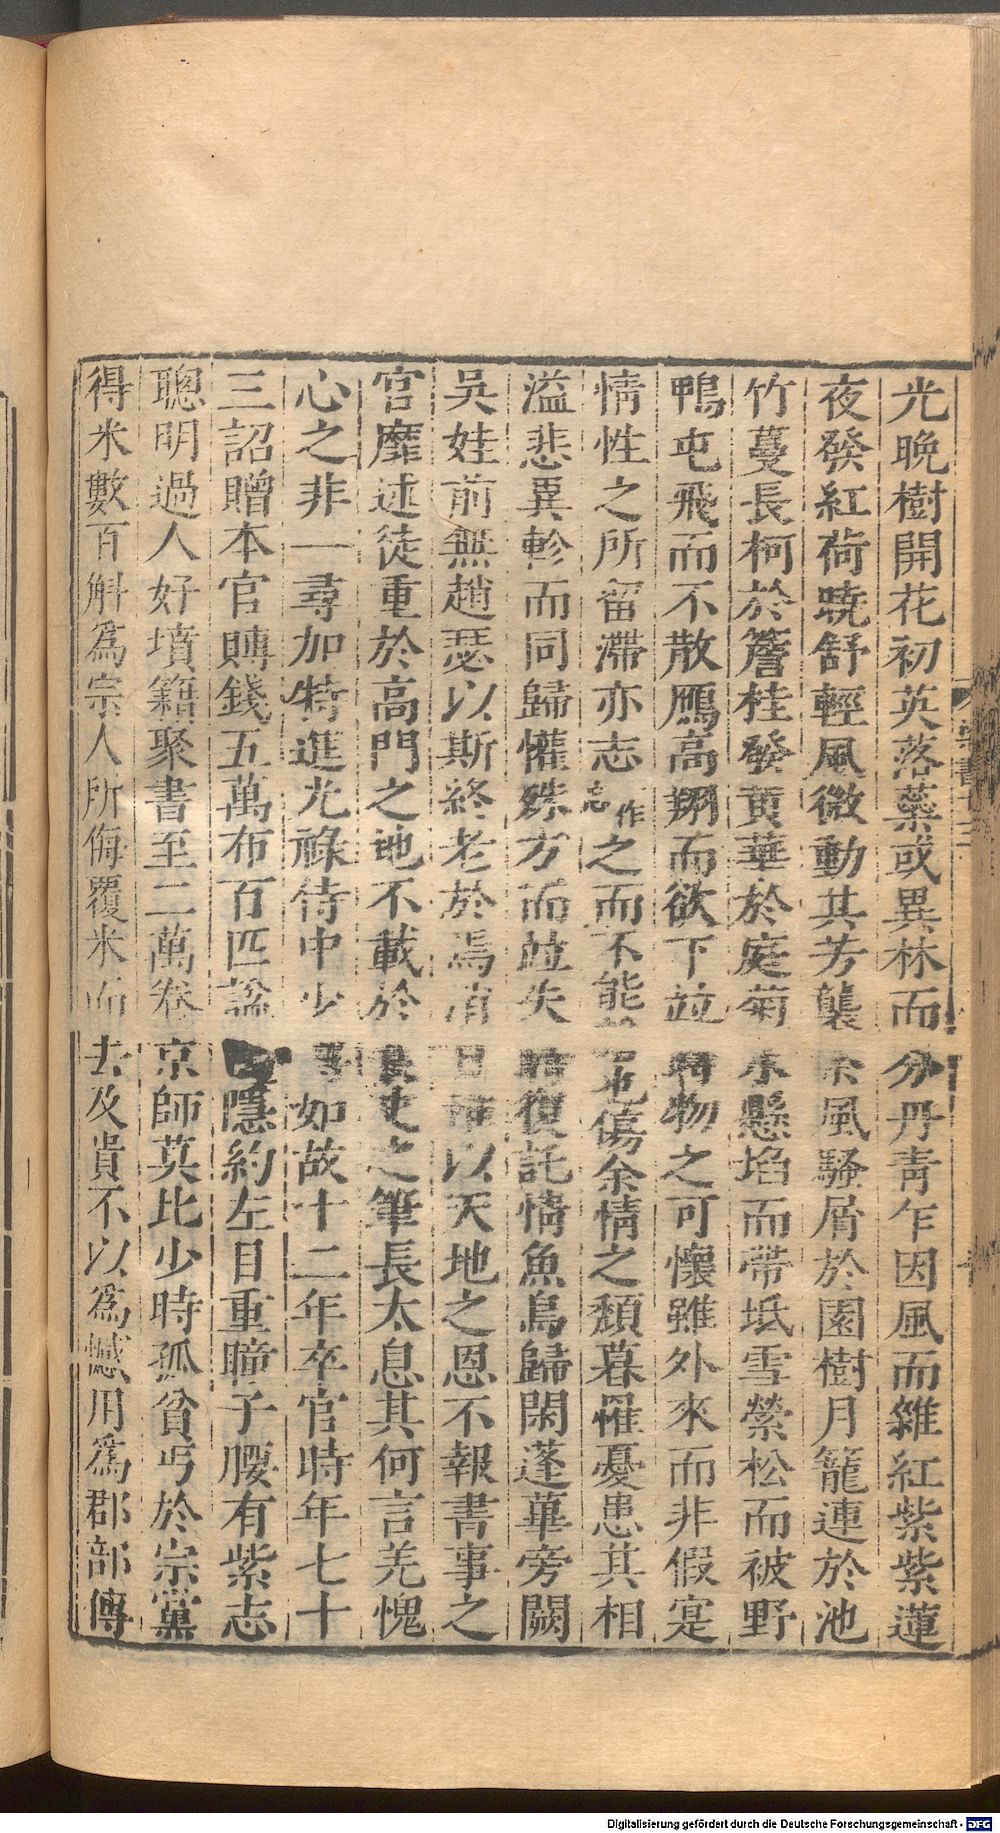 光晚樹開花初英落蘂或異林而分丹青乍因風而雜紅紫紫蓮
夜發紅荷曉舒輕風微動其芳襲余風騷屑於園樹月籠連於池
竹蔓長柯於簷桂發黄華於庭菊氷懸埳而帶坻雪縈松而被野
鴨屯飛而不散鴈高翔而欲下竝時物之可懷雖外來而非假寔
情性之所留滯亦志作忘之而不能也傷余情之頽暮罹憂患其相
溢悲異軫而同歸懽殊方而竝失復託情魚鳥歸閑蓬蓽旁闕
吳娃前無趙瑟以斯終老於焉消日以天地之恩不報書事之
官靡述徒重於高門之地不載於良史之筆長太息其何言羌愧
心之非一尋加特進光祿侍中少如故十二年卒官時年七十
三詔贈本官賻錢五萬布百匹諡隱約左目重瞳子腰有紫志
聰明過人好墳籍聚書至二萬卷京師莫比少時孤貧丐於宗黨
得米數百斛爲宗人所侮覆米而去及貴不以爲憾用爲郡部傳
Digitalisierung gefördert durch die Deutsche Forschungsgemeinschaft - DFG